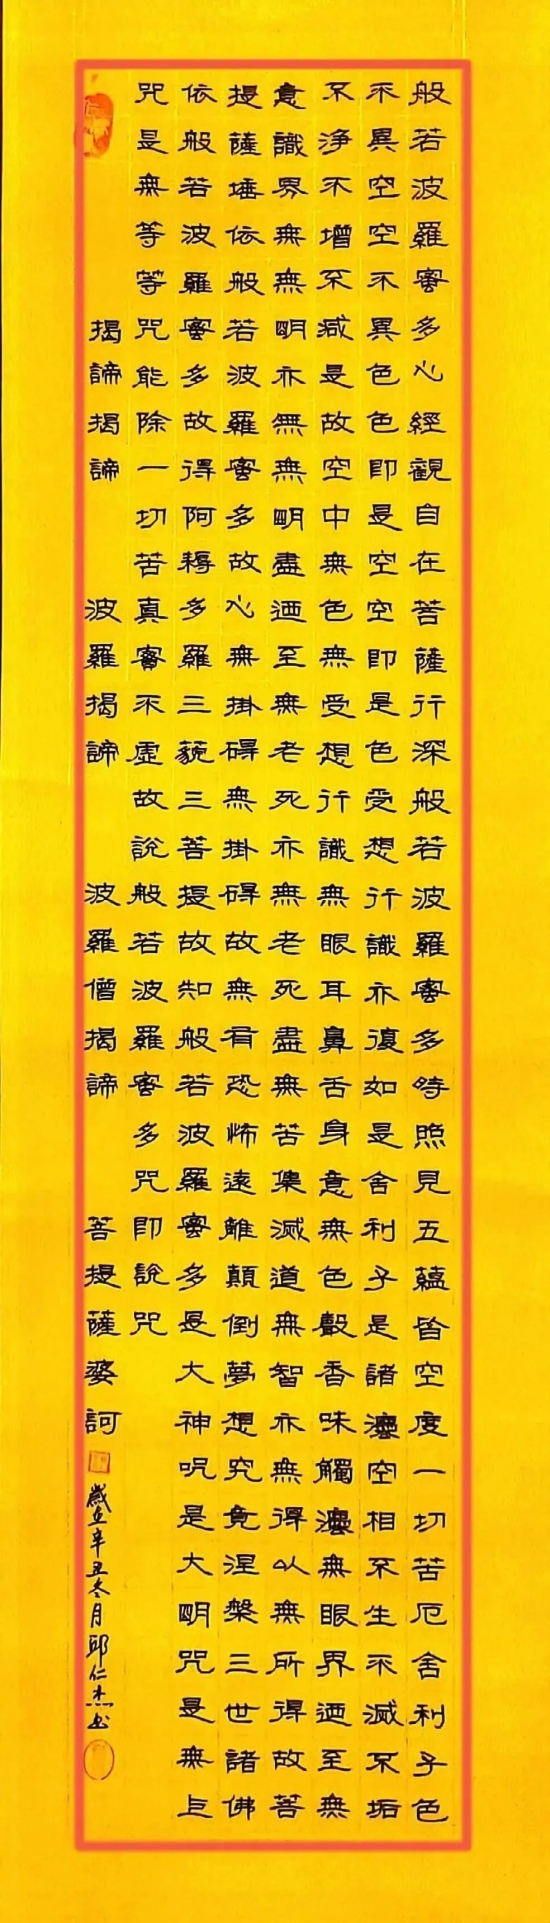 般若波羅蜜多心經觀自在菩薩行深般若波羅蜜多時照見五蘊皆空度一切苦厄舍利子色
不異空空不異色色即是空空即是色受想行識亦復如是舍利子是諸灋空相不生不滅不垢
不淨不增不減是故空中無色無受想行識無眼耳鼻舌身意無色聲香味觸灋無眼界迺至無
意識界無無明亦無無明盡迺至無老死亦無老死盡無苦集滅道無智亦無得以無所得故菩
提薩埵依般若波羅蜜多故心無掛碍無掛碍故無有恐怖遠離顛倒夢想究竟涅槃三世諸佛
依般若波羅蜜多故得阿耨多羅三藐三菩提故知般若波羅蜜多是大神呪是大明咒是無上
咒是無等等咒能除一切苦真實不虛故說般若波羅蜜多咒即說咒
揭諦揭諦 波羅揭諦 波羅僧揭諦 菩提薩婆訶
歲在辛丑冬月邱仁杰书